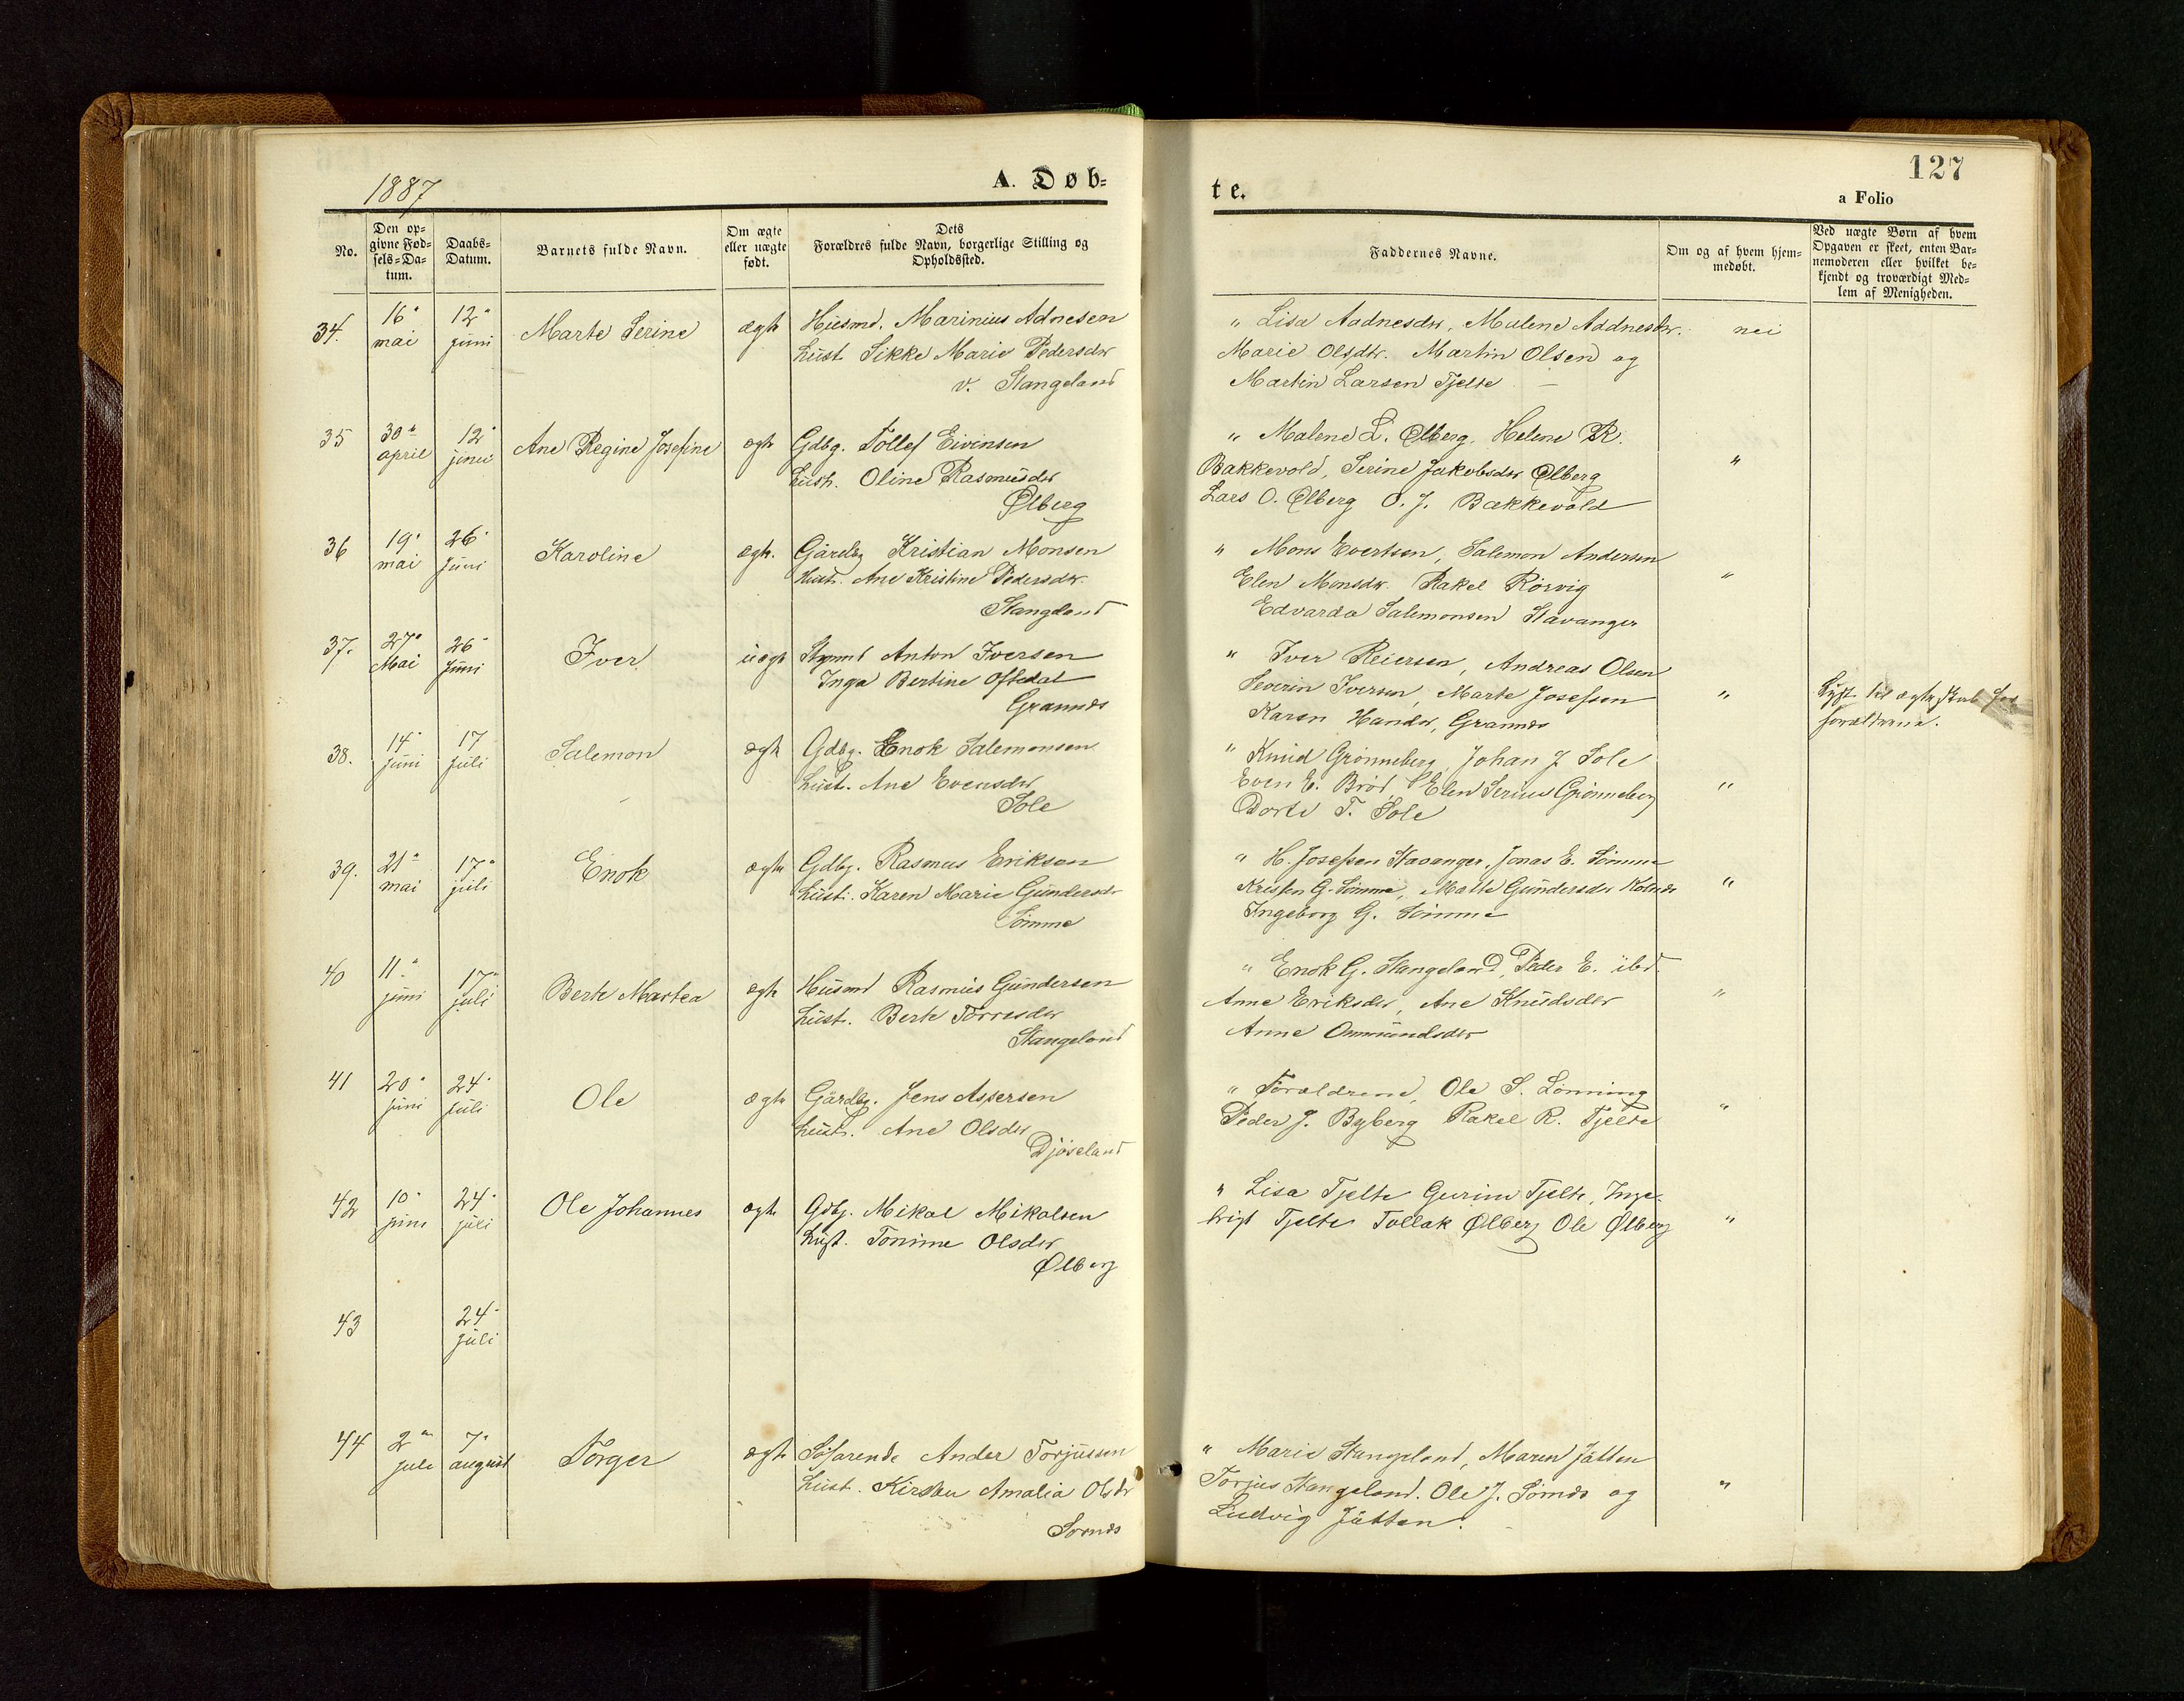 1887
A. Døb-
te.
127
a Folio
No.
Den op-
givne Fød-
sels-Da-
tum.
Daabs-
Datum.
Barnets fulde Navn.
Om ægte
eller uægte
født.
Dets
Forældres fulde Navn, borgerlige Stilling og
Opholdssted.
Faddernes Navne.
Om og af hvem hjem-
medøbt.
Ved uægte Børn af hvem
Opgaven er skeet, enten Bar-
nemoderen eller hvilket be-
kjendt og troværdigt Med-
lem af Menigheden.
34. 16 mai 12 juni Marte Serine ægte Husmd. Marinius Adnesen
hust. Sikke Marie Pedersdtr
v. Stangeland
" Lisa Aadnesdtr, Malene Addnesdtr. nei
Marie Olsdtr. Martin Olsen og
Martin Larsen Tjelte —
35 30 april 12 juni Ane Regine Josefine ægte Gdbg. Tollef Eivinsen
hust. Oline Rasmusdtr
Ølberg
" Malene L. Ølberg, Helene R.
Bakkevold, Serine Jakobsdtr Ølberg "
Lars O. Ølberg O. J. Bakkevold
36 19 mai 26 juni Karoline ægte. Gårdbg Kristian Monsen
Hust. Ane Kristine Pedersdtr.
Stangeland
" Mons Evertsen, Salemon Andersen
Elen Monsdtr. Rakel Rørvig "
Edvarda Salemonsen Stavanger
37. 27 Mai 26 Juni Iver uægte Anton Iversen
Inga Bertine Oftedal
Grannes
" Iver Reiersen, Andreas Olsen
Severin Iversen, Marte Josefsen "
Karen Hansdtr, Grannes
Lyst til ægteskab for
forældrene.
38. 14 juni 17 juli Salemon ægte Gdbg. Enok Salemonsen
hust. Ane Evensdtr
Sole
" Knud Grønneberg, Johan J Sole
Even E. Brød Elen Serine Grønneberg "
Dorte T. Sole
39. 21 mai 17 juli Enok ægte Gdbg. Rasmus Eriksen
hust. Karen Marie Gundersdtr
Sømme
" H. Josefsen Stavanger, Jonas E. Sømme
Kristen G. Sømme, Malte Gundersdtr Kolnes "
Ingeborg G. Sømme
40 11 juni 17 juli Berte Martea ægte Husmd Rasmus Gundersen
hust. Berte Torresdtr
Stangeland
" Enok G. Stangeland, Peder E. ibd.
Anne Eriksdtr, Ane Knudsdtr "
Anne Ommundsdtr
41 20 juni 24 juli Ole ægte Gårdbg. Jens Assersen
hust. Ane Olsdtr
Djøseland
" Forældrene, Ole S. Lønning
Peder J. Byberg Rakel R. Tjelte "
42 10 juni 24 juli Ole Johannes ægte Gdbg. Mikal Mikalsen
hust. Tonime Olsdtr
Ølberg
" Lisa Tjelte Gurine Tjelte, Inge-
brigt Tjelte Tollak Ølberg Ole Ølberg "
43 24 juli
44 2 juli 7 august Torger ægte Søfarende Ander Torjussen
hust. Kirsten Amalia Olsdtr
Sømes
" Marie Stangeland, Maren Jåtten
Torjus Stangeland. Ole J. Sømes og "
Ludvig Jåtten.